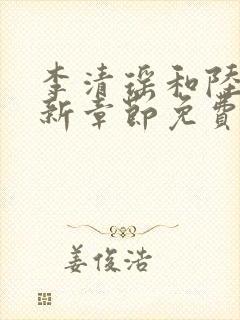 李清瑶和陸
新章節免費
姜俊浩